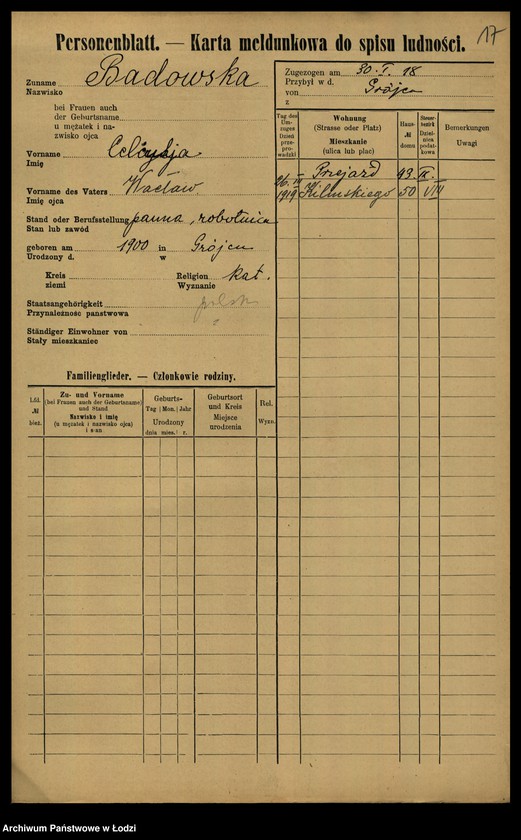 17
Personenblatt. — Karta meldunkowa do spisu ludności.
Zuname Badowska
Nazwisko
bei Frauen auch
der Geburtsname
u mężatek i na-
zwisko ojca
Vorname
Imię
Vorname des Vaters Wacław
Imię ojca
Stand oder Berufsstellung panna, robotnica
Stan lub zawód
geboren am 1900 in Grójcu
Urodzony d. w
Kreis Religion kat.
ziemi Wyznanie
Staatsangehörigkeit polsk
Przynależność państwowa
Ständiger Einwohner von
Stały mieszkaniec
Zugezogen am 30. I. 18
Przybył w d.
von Grójca
z
Tag des Um-zuges Dzień prze-prowadzki
Wohnung
(Strasse oder Platz)
Mieszkanie
(ulica lub plac)
Haus-
№
domu
Steuer-bezirk Dziel-nica podat-kowa
Bemerkungen
Uwagi
Przejazd 43 IX.
26. III 1919 Kilińskiego 50 VIII
Familienglieder. — Członkowie rodziny.
Lfd.
№
bież.
Zu- und Vorname
(bei Frauen auch der Geburtsname)
und Stand
Nazwisko i imię
(u mężatek i nazwisko ojca)
i stan
Geburts-
Tag Mon. Jahr
Urodzony
dnia mies. r.
Geburtsort
und Kreis
Miejsce
urodzenia
Rel.
Wyzn.
Archiwum Państwowe w Łodzi